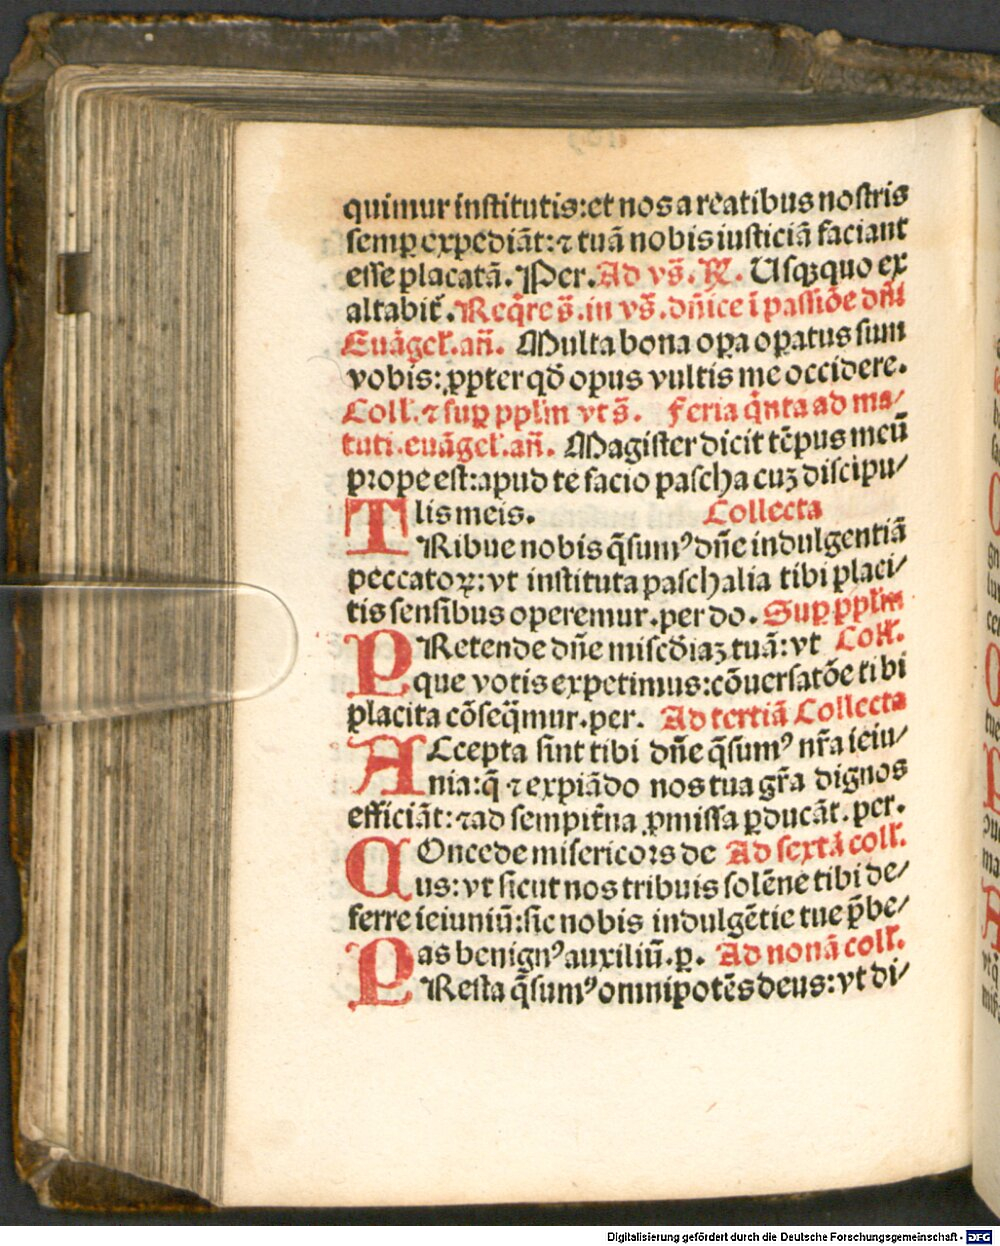 quimur institutis:et nos a reatibus nostris
semꝑ expediãt:⁊ tuã nobis iusticiã faciant
esse placatã. Per. Ad vs̃. ℞. Usqꝫquo ex
altabit̃. Req̃re s̃. in vs̃. dñice ĩ passiõe dñi
Euãgel̃. añ. Multa bona oꝑa oꝑatus sum
vobis: ꝓpter qđ opus vultis me occidere.
Coll̃. ⁊ suꝑ ppl̃m vt s̃. Feria q̃nta ad ma/
tuti. euãgel̃. añ. Magister dicit tẽpus meũ
prope est:apud te facio pascha cuꝫ discipu/
lis meis. Collecta
TRibue nobis q̃sumꝰ dñe indulgentiã
peccatoꝝ: vt instituta paschalia tibi placi/
tis sensibus operemur. per do. Suꝑ ppl̃m
PRetende dñe misc̃diaꝫ tuã: vt Coll̃.
que votis expetimus: cõuersatõe tibi
placita cõseq̃mur. per. Ad tertiã Collecta
ACcepta sint tibi dñe q̃sumꝰ nr̃a ieiu/
nia: q̃ ⁊ expiãdo nos tua gr̃a dignos
efficiãt: ⁊ ad sempit̃na ꝓmissa ꝑducãt. per.
COncede misericors de Ad sextã coll̃.
us: vt sicut nos tribuis solẽne tibi de/
ferre ieiuniũ: sic nobis indulgẽtie tue p̃be/
as benignꝰ auxiliũ. ꝑ. Ad nonã coll̃.
PResta q̃sumꝰ omnipotẽs deus: vt di/
Digitalisierung gefördert durch die Deutsche Forschungsgemeinschaft - DFG